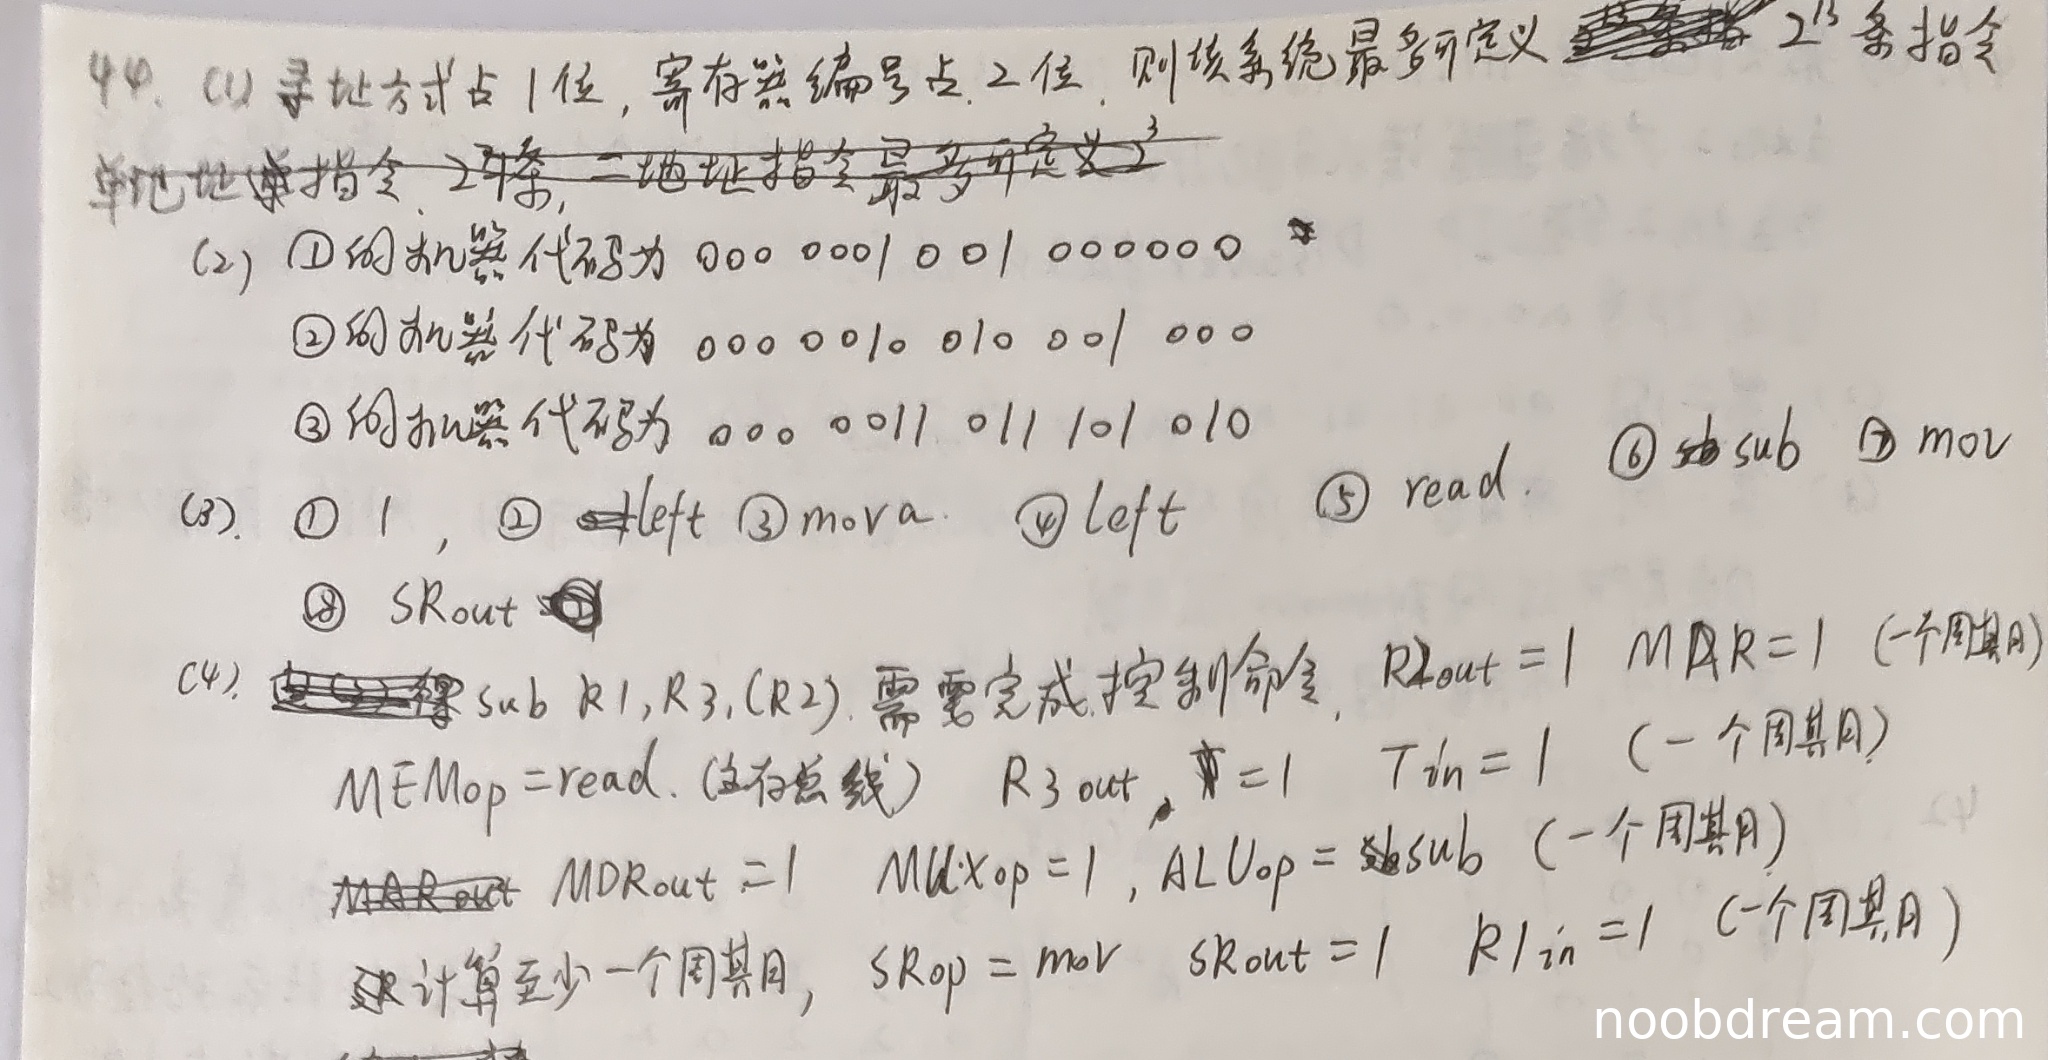 44. (1) 寻址方式占1位，寄存器编号占2位，则该系统最多可定义 2^13 条指令
单地址指令 2 条，二地址指令最多可定义 2^3
(2) ①的机器代码为 000 0001 001 000000
②的机器代码为 000 0010 010 001 000
③的机器代码为 000 0011 011 101 010
(3). ① 1 , ② left ③ mova. ④ left ⑤ read. ⑥ sub ⑦ mov
⑧ SRout
(4). sub R1,R3,(R2). 需要完成控制命令, R2out = 1 MAR = 1 (一个周期)
MEMop = read. (主存总线) R3out = 1 Tin = 1 (一个周期)
MARout MDRout = 1 MUXop = 1 , ALUop = sub (一个周期)
计算至少一个周期, SRop = mov SRout = 1 R1in = 1 (一个周期)
noobdream.com